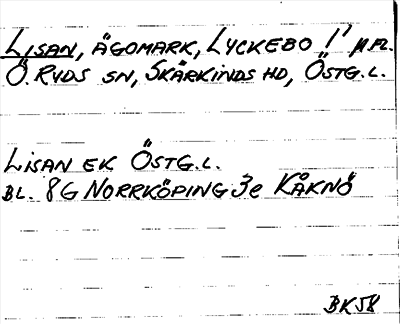 LISAN, ÄGOMARK, LYCKEBO 1' µ FL.
Ö. RYDS SN, SKÄRKINDS HD, ÖSTG.L.
LISAN EK ÖSTG.L.
BL. 8G NORRKÖPING 3e KÅKNÖ
BK58